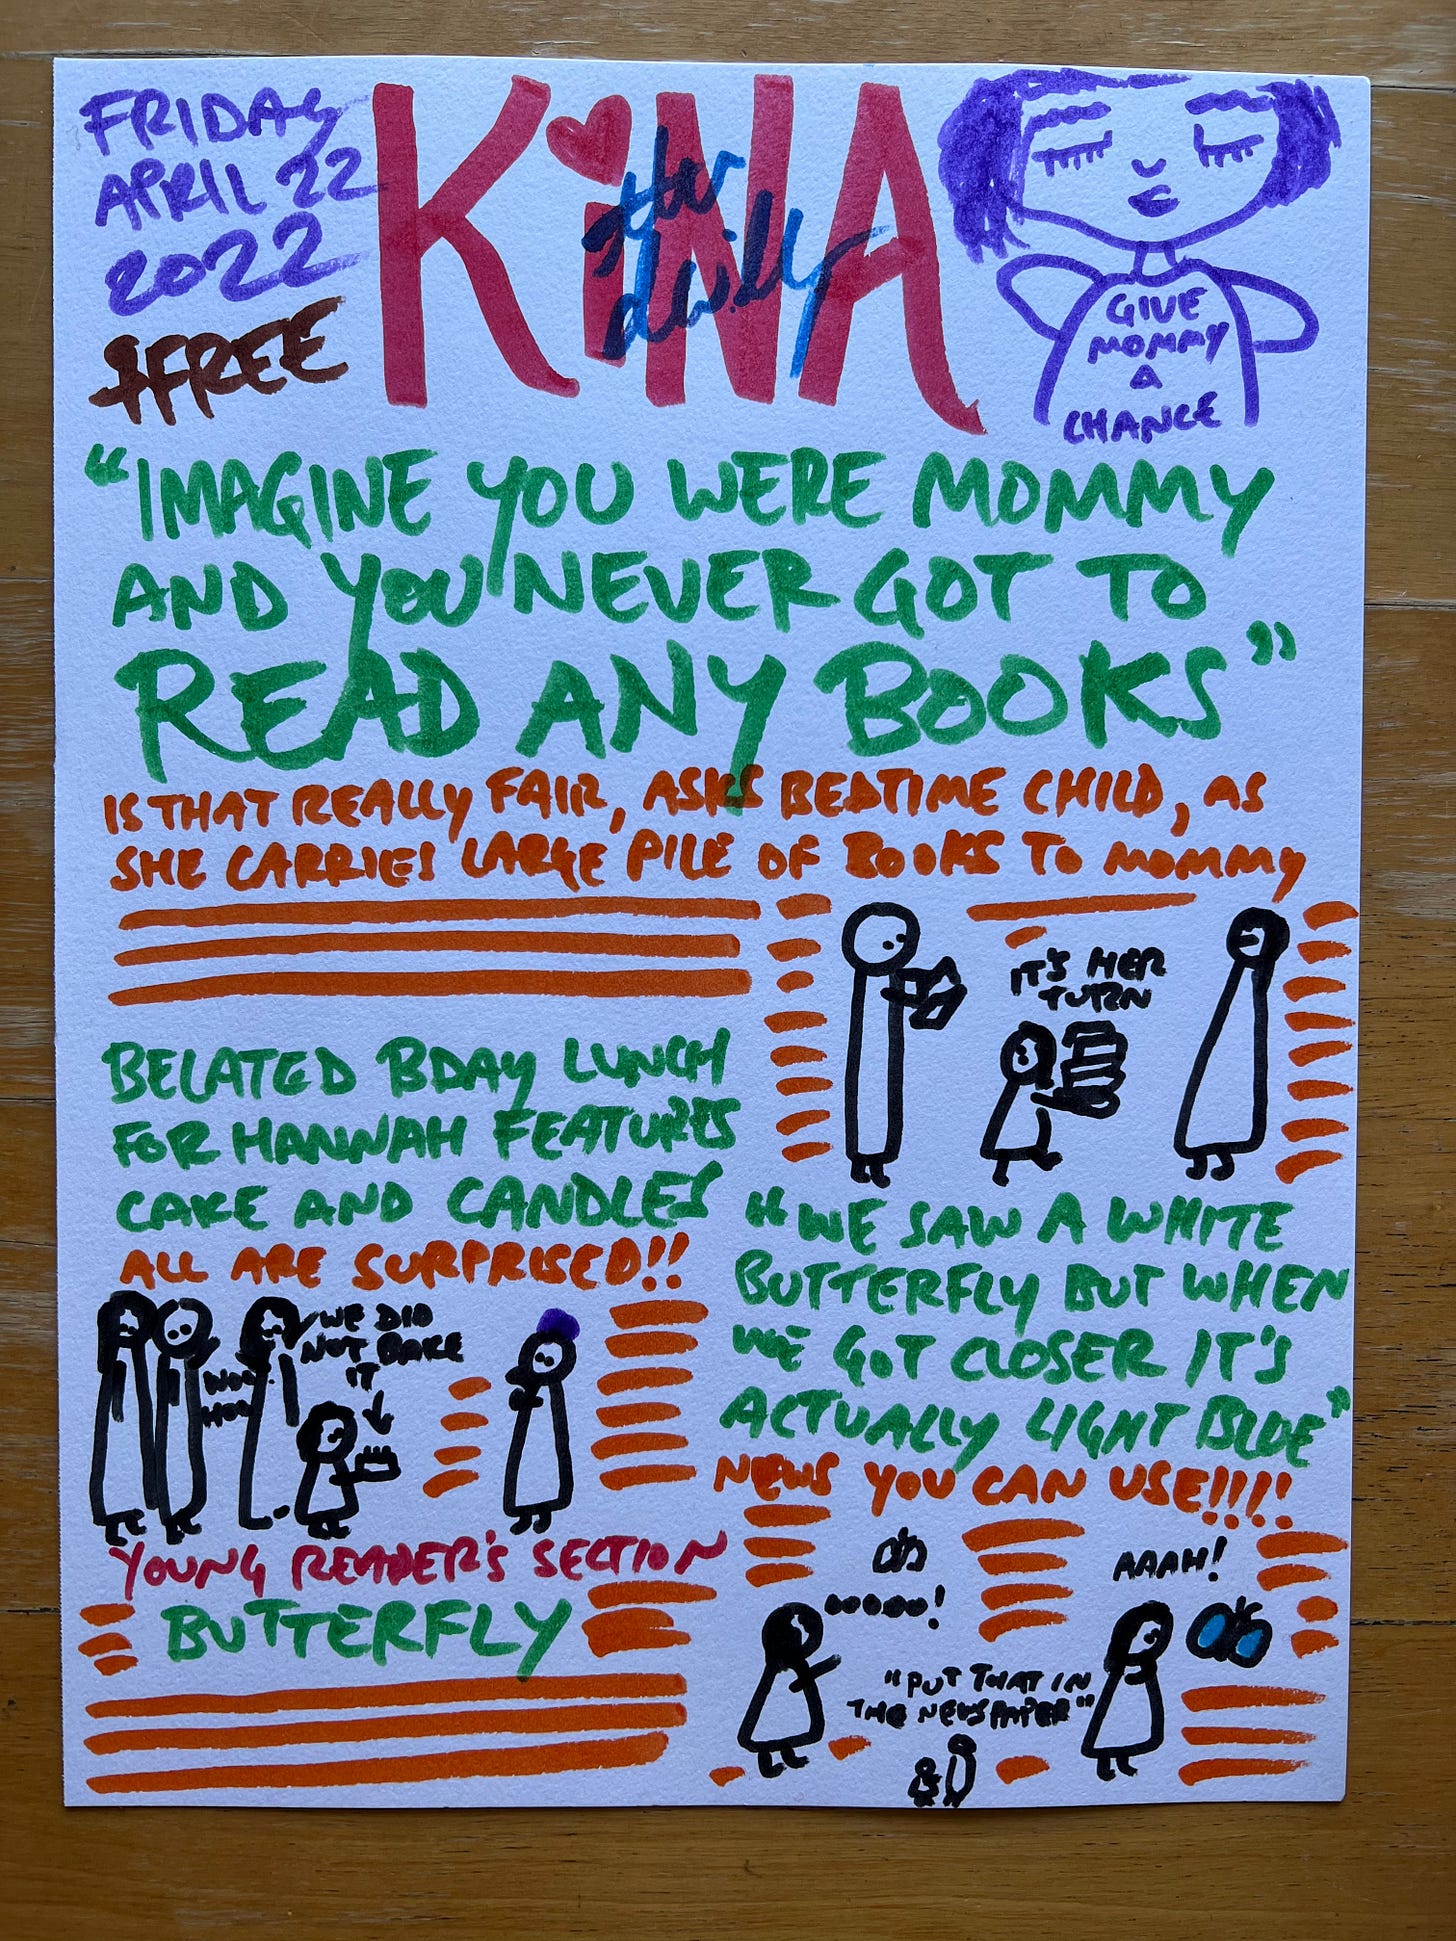 FRIDAY
APRIL 22
2022
$FREE
KiNA
the daily
GIVE
MOMMY
A
CHANCE
"IMAGINE YOU WERE MOMMY
AND YOU NEVER GOT TO
READ ANY BOOKS"
IS THAT REALLY FAIR, ASKS BEDTIME CHILD, AS
SHE CARRIES LARGE PILE OF BOOKS TO MOMMY
IT'S HER
TURN
BELATED BDAY LUNCH
FOR HANNAH FEATURES
CAKE AND CANDLES
ALL ARE SURPRISED!!
WE DID
NOT BAKE
IT
WOO
HOO
"WE SAW A WHITE
BUTTERFLY BUT WHEN
WE GOT CLOSER IT'S
ACTUALLY LIGHT BLUE"
NEWS YOU CAN USE!!!!
OOOOO!
AAAH!
"PUT THAT IN
THE NEWSPAPER"
YOUNG READER'S SECTION
BUTTERFLY